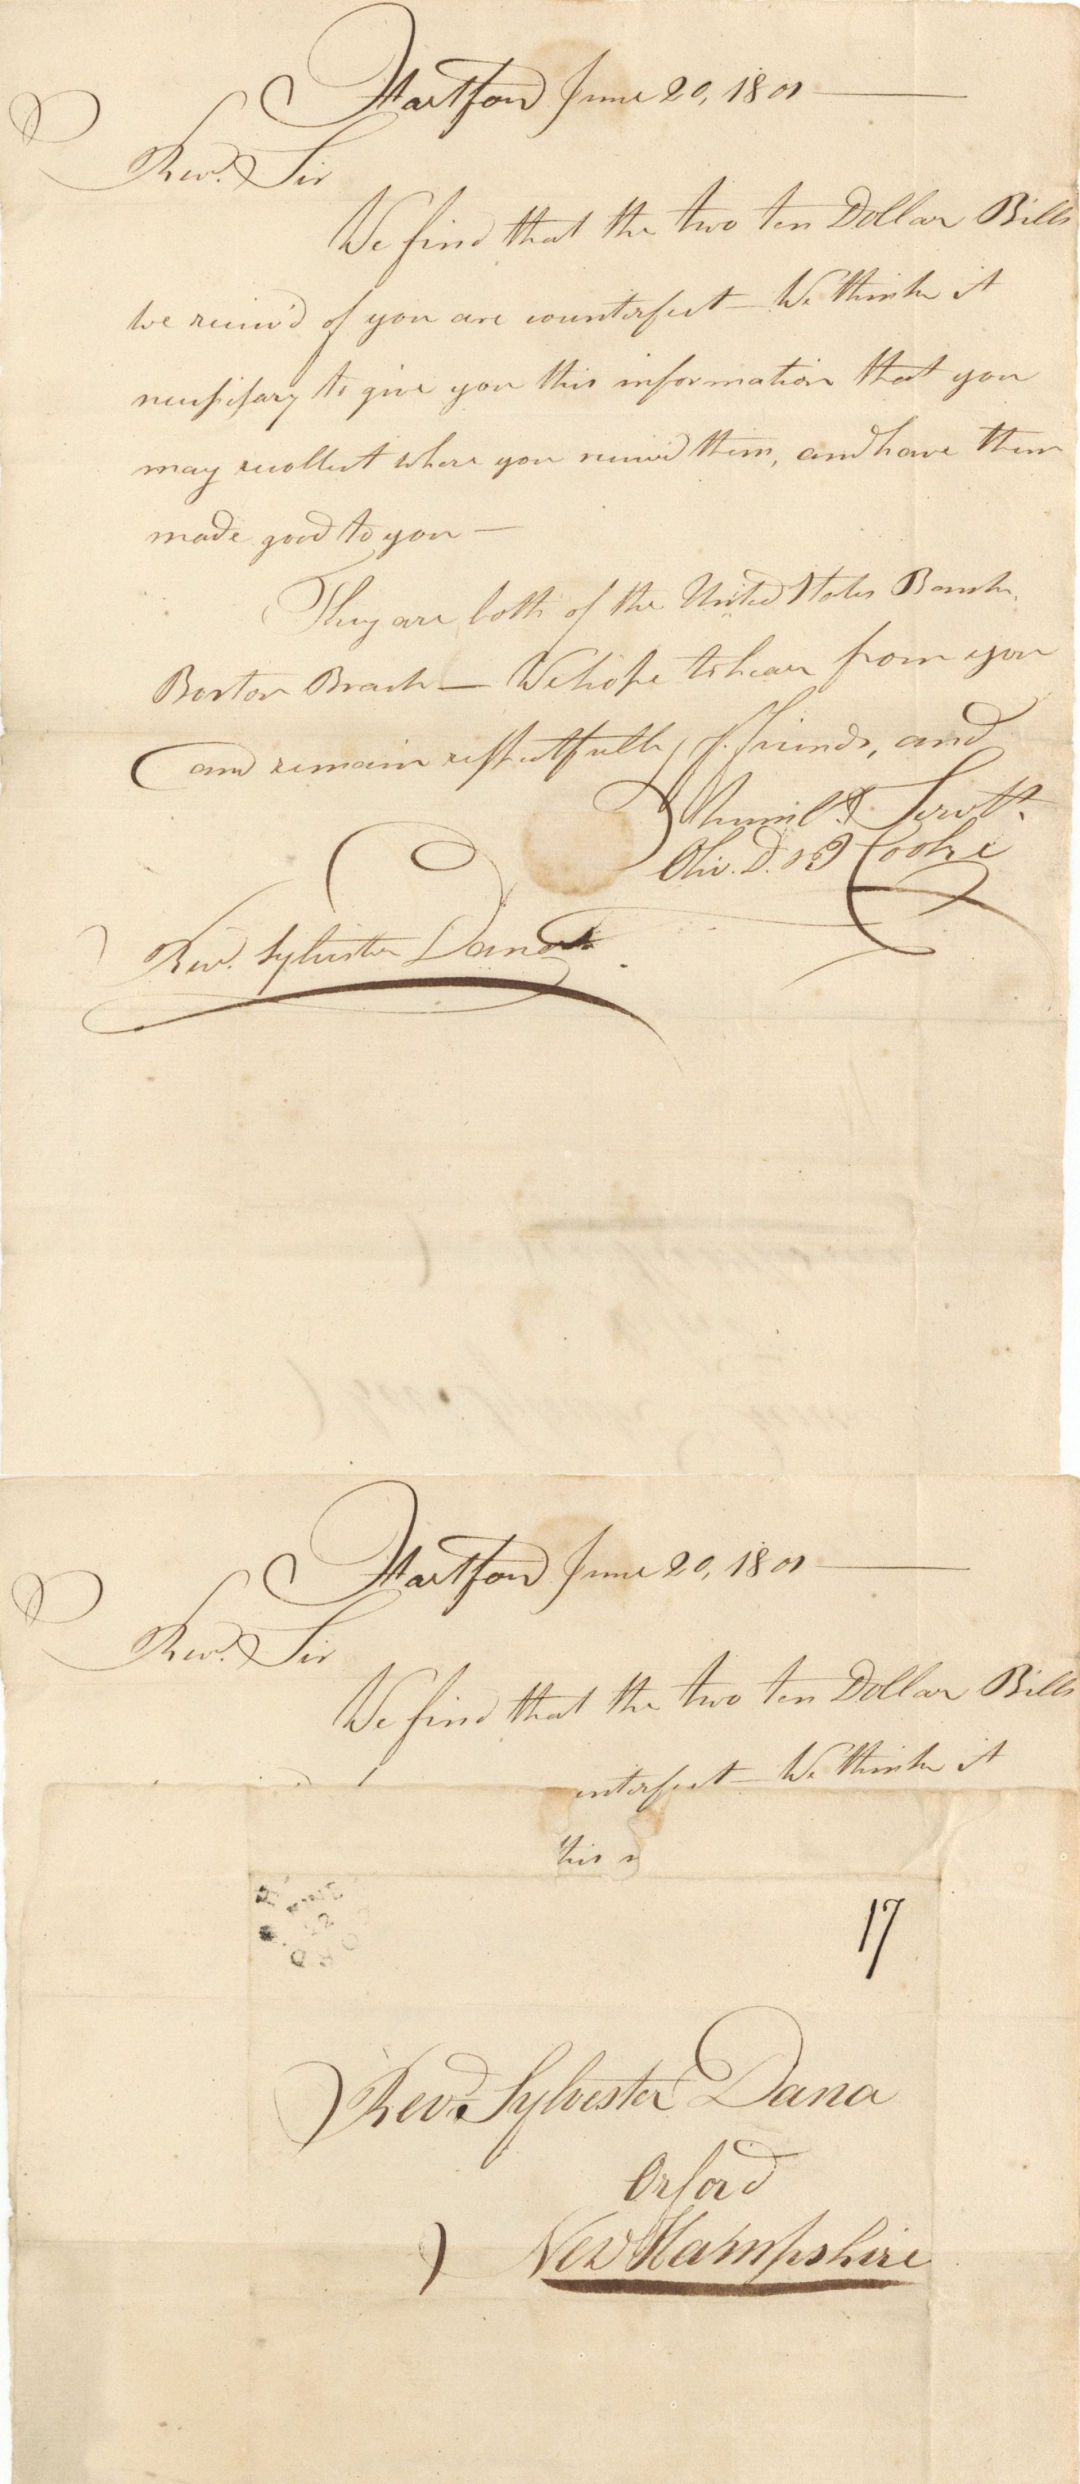 Hartford June 20, 1801
Revd. Sir
We find that the two ten Dollar Bills
we receiv'd of you are counterfeit – We think it
necessary to give you this information that you
may recollect where you receiv'd them, and have them
made good to you –
They are both of the United States Bank,
Boston Branch – We hope to hear from you
and remain respectfully yr. friends, and
Humbl. Servts.
Oliv. D. & I Cooke
Revd. Sylvester Dana
Hartford June 20, 1801
Revd. Sir
We find that the two ten Dollar Bills
unterfeit – We think it
this
17
Revd. Sylvester Dana
Orford
New Hampshire